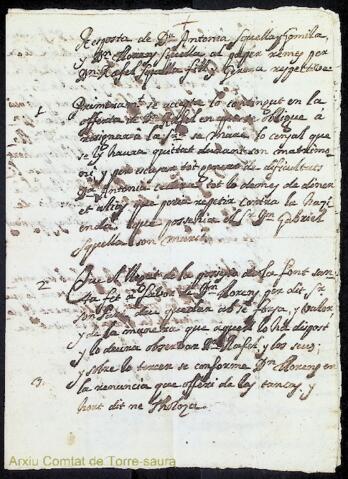 Resposta de Dª Antonia Squella y Gomila,
y Dn Llorenç Squella al paper remes per
Dn Rafel Squella fill y Germa respective
1 Primerament se accepta lo contingut en la
offerta de Dn Rafel en que se obligue a
designarla la Sra se Mare lo censal que
se li haura quittat durant son matrimo-
ni y per encupantas genero de dificultats
Dª Antonia cedira tot lo demes de diner
et alias que poria repetir contra la hazi-
enda que possehia el Sr Dn Gabriel
Squella son marit.
2 Que el llegat de la porcio de la Font San-
ta fet à favor de Dn Llorenç per dit Sr
son Pare deu quedar ab se força, y valor
y de la manera que aquell lo ha dispost
y lo deura observar Dn Rafel, y los seus;
3 y sobre lo tercer se conforme Dn Llorenç en
la renuncia que offeri de las tancas, y
hort dit ne
Arxiu Comtat de Torre-saura